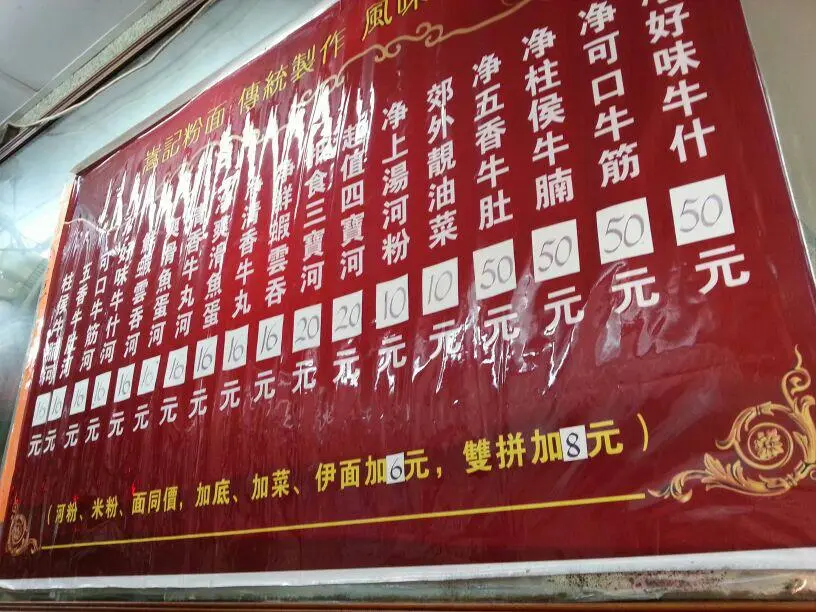 嵩記粉面 傳統製作 風味
好味牛什 50元
净可口牛筋 50元
净柱侯牛腩 50元
净五香牛肚 50元
郊外靚油菜 10元
净上湯河粉 10元
超值四寶河 20元
食三寶河 20元
鮮蝦雲吞 16元
清香牛丸 16元
爽滑魚蛋 16元
香牛丸河 16元
滑魚蛋河 16元
蝦雲吞河 16元
好味牛什河 16元
可口牛筋河 16元
五香牛肚河 16元
柱侯牛腩河 16元
(河粉、米粉、面同價,加底、加菜、伊面加6元,雙拼加8元)